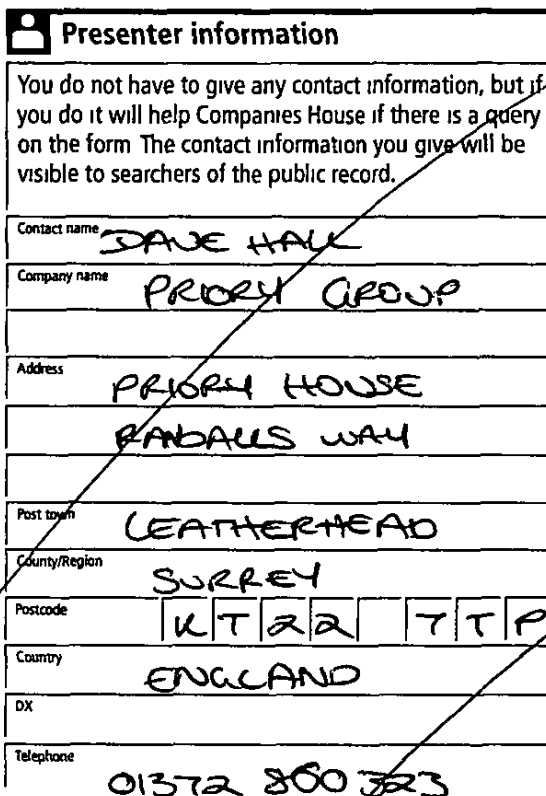 Presenter information
You do not have to give any contact information, but if
you do it will help Companies House if there is a query
on the form The contact information you give will be
visible to searchers of the public record.
Contact name DAVE HALL
Company name PRIORY GROUP
Address PRIORY HOUSE
RANDALLS WAY
Post town LEATHERHEAD
County/Region SURREY
Postcode KT22 7TP
Country ENGLAND
DX
Telephone 01372 860 323